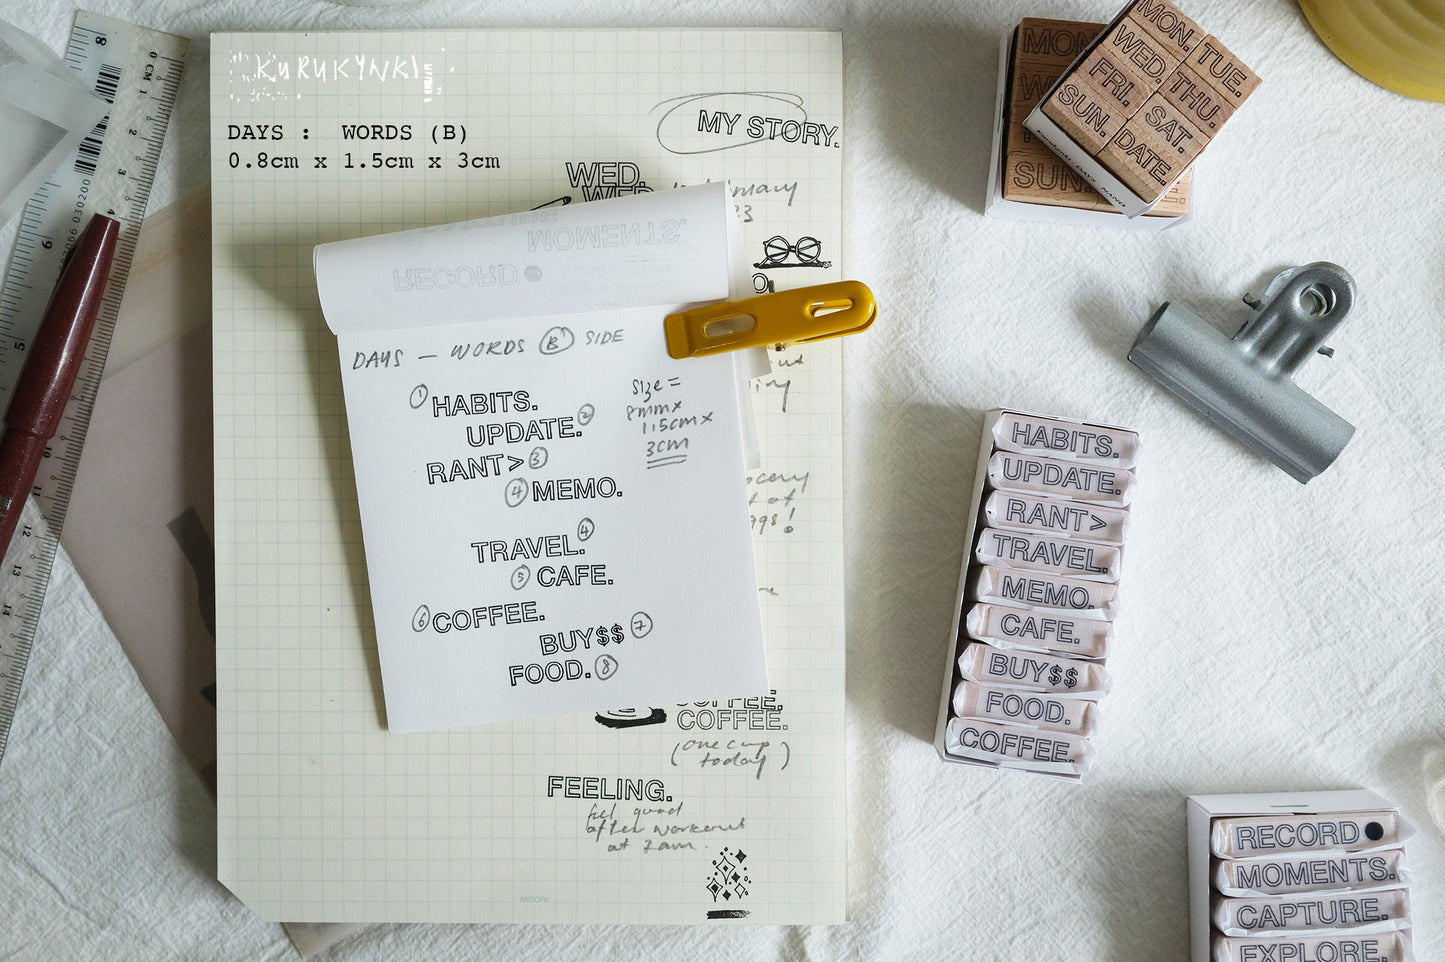 KURUKYNKI
DAYS : WORDS (B)
0.8cm x 1.5cm x 3cm
MY STORY.
WED.
WED.
MOMENTS.
RECORD ●
DAYS — WORDS (B) SIDE
① HABITS.
UPDATE. ②
RANT> ③
④ MEMO.
TRAVEL. ④
⑤ CAFE.
⑥ COFFEE.
BUY$$ ⑦
FOOD. ⑧
size =
8mm x
1.5cm x
3cm
COFFEE.
COFFEE.
(one cup
today)
FEELING.
feel good
after workout
at 7am.
MIDORI
MON. TUE.
WED. THU.
FRI. SAT.
SUN. DATE.
MON
SUN.
HABITS.
UPDATE.
RANT>
TRAVEL.
MEMO.
CAFE.
BUY$$
FOOD.
COFFEE.
RECORD ●
MOMENTS.
CAPTURE.
EXPLORE.